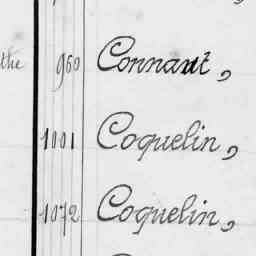 the 960 Connaut,
1001 Coquelin,
1072 Coquelin,